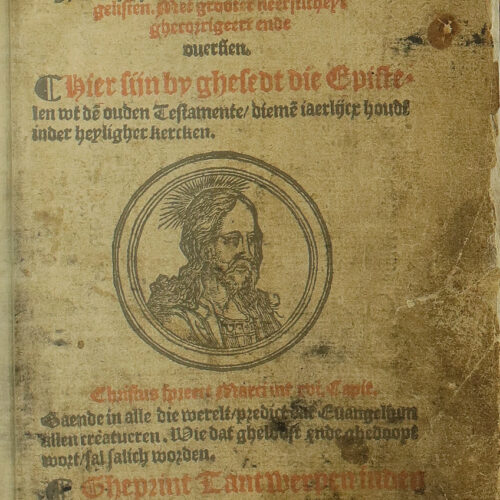 gelisten. Met grooter neersticheyt
ghecorrigeert ende
ouersien.
Hier sijn by ghesedt die Epiſte-
len wt dē ouden Testamente/ diemē iaerlijcx houdt
inder heyligher kercken.
Christus spreect Marci int xvi. Capit.
Gaende in alle die werelt/predict dat Euangelium
allen creatueren. Wie dat ghelooft ende ghedoopt
wort/sal salich worden.
Gheprint Tantwerpen inden